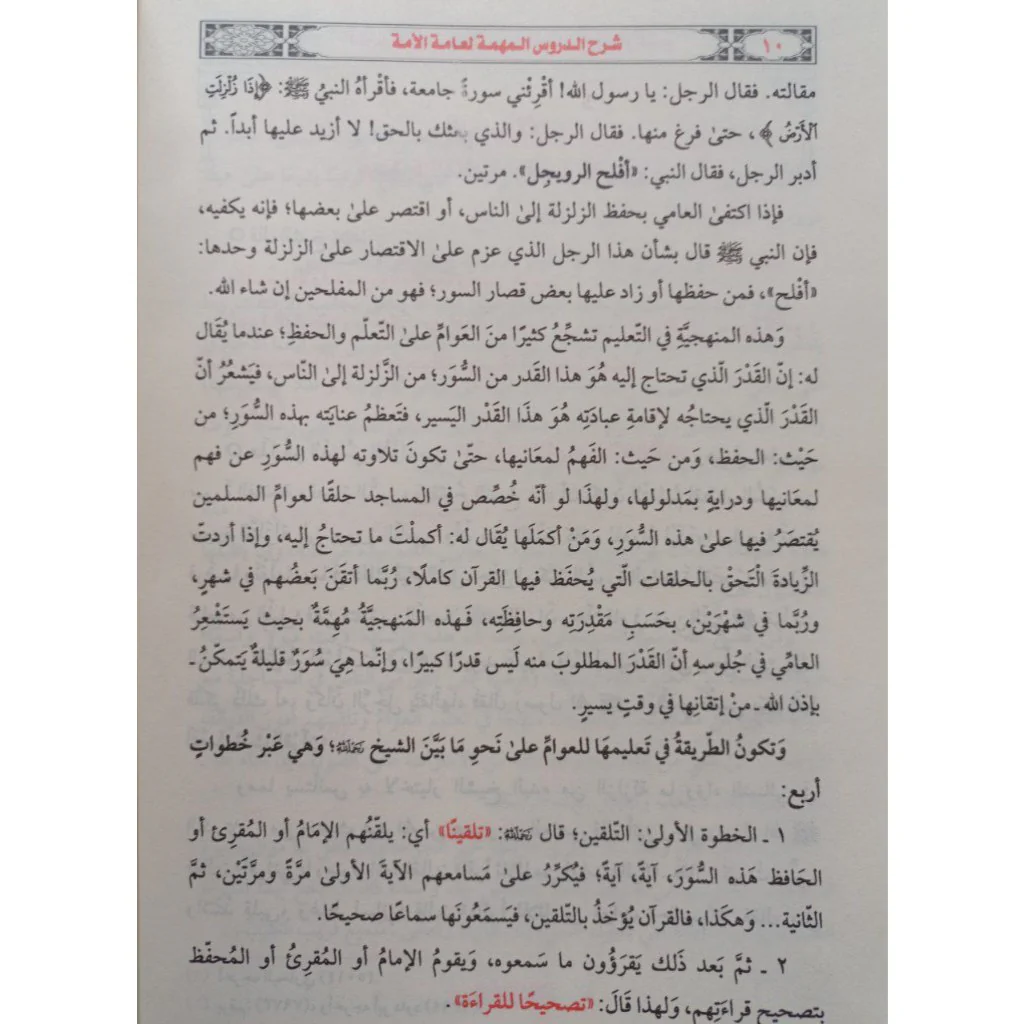 ١٠
شرح الدروس المهمة لعامة الأمة
مقالته. فقال الرجل: يا رسول الله! أقْرِئْني سورةً جامعة، فأقْرأهُ النبيُ ﷺ: ﴿إِذَا زُلْزِلَتِ
الْأَرْضُ﴾، حتىٰ فرغ منها. فقال الرجل: والذي بعثك بالحق! لا أزيد عليها أبداً. ثم
أدبر الرجل، فقال النبي: «أفْلح الرويجِل». مرتين.
فإذا اكتفىٰ العامي بحفظ الزلزلة إلىٰ الناس، أو اقتصر علىٰ بعضها؛ فإنه يكفيه،
فإن النبي ﷺ قال بشأن هذا الرجل الذي عزم علىٰ الاقتصار علىٰ الزلزلة وحدها:
«أفْلح»، فمن حفظها أو زاد عليها بعض قصار السور؛ فهو من المفلحين إن شاء الله.
وَهذه المنهجيَّةِ في التّعليم تشجِّعُ كثيرًا منَ العَوامِّ علىٰ التّعلّم والحفظِ؛ عندما يُقَال
له: إنّ القَدْرَ الّذي تحتاج إليه هُوَ هذا القَدر من السُّوَر؛ من الزَّلزلة إلىٰ النّاس، فيَشعُرُ أنّ
القَدْرَ الّذي يحتاجُه لإقامةِ عبادَتِه هُوَ هَذا القَدْر اليَسير، فتَعظمُ عنايَته بهذه السُّوَرِ؛ من
حَيْث: الحفظ، وَمن حَيث: الفَهمُ لمعَانيها، حتّىٰ تكونَ تلاوته لهذه السُّوَرِ عن فهم
لمعَانيها ودرايةٍ بمَدلولها، ولهذَا لو أنّه خُصِّص في المساجد حلقًا لعوامِّ المسلمين
يُقتصَرُ فيها علىٰ هذه السُّوَرِ، وَمَنْ أكمَلَها يُقَال له: أكملْتَ ما تحتاجُ إليه، وإذا أردتّ
الزِّيادةَ الْتَحقْ بالحلقات الّتي يُحفَظ فيها القرآن كاملًا، رُبَّما أتقَنَ بَعضُهم في شهرٍ،
ورُبَّما في شهْرَيْن، بحَسَبِ مَقْدِرَتِه وحافِظَتِه، فَهذه المَنهجيَّةُ مُهِمَّةٌ بحيث يَستَشْعِرُ
العامِّي في جُلوسهِ أنّ القَدْرَ المطلوبَ منه لَيس قدرًا كبيرًا، وإنّما هِيَ سُوَرٌ قليلةٌ يَتمكّنُ ـ
بإذن الله ـ منْ إتقَانِها في وقتٍ يسيرٍ.
وَتكونُ الطّريقةُ في تَعليمهَا للعوامِّ علىٰ نَحوِ مَا بَيَّنَ الشيخ رَحِمَهُ ٱللَّهُ؛ وَهي عَبْر خُطواتٍ
أربع:
١ ـ الخطوة الأولىٰ: التّلقين؛ قال رَحِمَهُ ٱللَّهُ: «تلقينًا» أي: يلقّنُهم الإمَامُ أو المُقرِئ أو
الحَافظ هَذه السُّوَرَ، آيةً، آيةً؛ فيُكرِّرُ علىٰ مَسامعهم الآيةَ الأولىٰ مرَّةً ومرَّتَيْن، ثمَّ
الثّانية... وَهكَذا، فالقرآن يُؤخَذُ بالتّلقين، فيَسمَعُونَها سماعًا صحيحًا.
٢ ـ ثمَّ بَعد ذَلك يَقرَؤُون ما سَمعوه، وَيقومُ الإمامُ أو المُقرِئُ أو المُحفّظ
بتصحيح قراءَتِهم، وَلهذا قَالَ: «تصحيحًا للقراءَة».